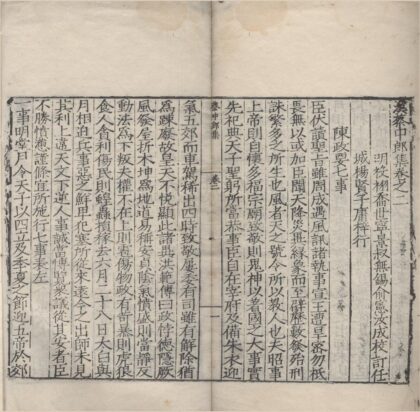 漢蔡中郎集卷之二
喬世寧景叔無錫俞憲汝成校訂任
城楊賢子庸梓行
陳政要七事
臣伏讀聖旨雖周成遇風訊諸執事宣王遭旱密勿祗
畏無以或加臣聞天降災異緣象而至辟歷數發殆刑
誅繁多之所生也風者天之號令所以教人也夫昭事
上帝則自懷多福宗廟致敬則鬼神以著國之大事實
先祀典天子聖躬所當恭事臣自在宰府及備朱衣迎
蔡中郎集
卷二
一
氣五郊而車駕稀出四時致敬屢委有司雖有解除猶
為疎廢故皇天不悅顯此諸異洪範傳曰政悖德隱厥
風發屋折木坤為地道易稱安貞陰氣憤盛則當靜反
動法為下叛夫權不在上則雹傷物政有苛暴則虎狼
食人貪利傷民則蝗蟲損稼去六月二十八日太白與
月相迫兵事惡之鮮卑犯塞所從來遠今之出師未見
其利上違天文下逆人事誠當博覽衆議從其安者臣
不勝憤懣謹條宜所施行七事表左
一事明堂月令天子以四立及季夏之節迎五帝於郊